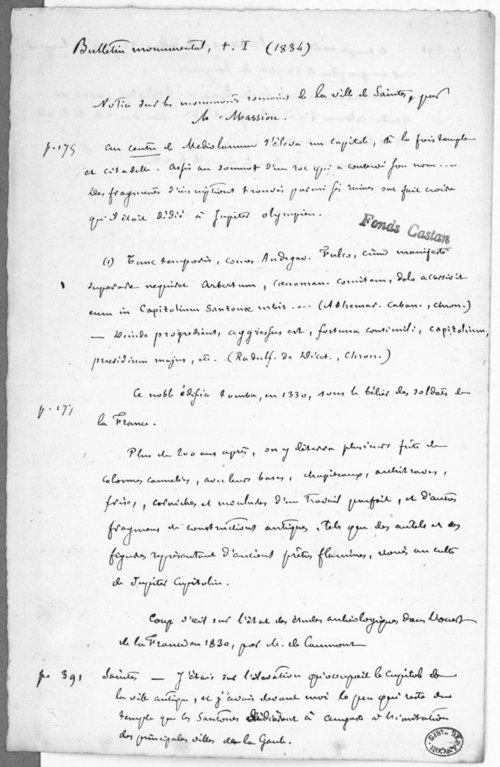 Bulletin monumental, t. I (1834)
Notice sur les monuments romains de la ville de Saintes, par
M. Massiou.
p. 175 Au centre de Mediolanum s'éleva un capitole, à la fois temple
et citadelle. Assis au sommet d'un roc qui a conservé son nom....
Des fragments d'inscriptions trouvés parmi ses ruines ont fait croire
qu'il était dédié à Jupiter olympien.
Fonds Castan
(1) Tunc temporis, comes Andegav. Fulco, cùm manifestè
superare nequiret Arbertum, cenoman. comitem, dolo accersivit
eum in Capitolium Santonæ urbis.... (Adhemar. Caban., chron.)
— Deinde progrediens, aggressus est, fortuna consimili, capitolium,
præsidium majus, etc. (Radulf. de Dicet., Chron.)
p. 177 Ce noble édifice tomba, en 1330, sous le bélier des soldats de
la France.
Plus de 200 ans après, on y déterra plusieurs fûts de
colonnes cannelés, avec leurs bases, chapiteaux, architraves,
frises, corniches et moulures d'un travail parfait, et d'autres
fragmens de constructions antiques, tels que des autels et des
figures représentant d'anciens prêtres flamines, voués au culte
de Jupiter Capitolin.
Coup d'œil sur l'état des études archéologiques dans l'Ouest
de la France en 1830, par M. de Caumont
p. 391 Saintes — J'étais sur l'élévation qu'occupait le Capitole de
la ville antique, et j'avais devant moi le peu qui reste du
temple que les Santones dédièrent à Auguste à l'imitation
des principales villes de la Gaule.